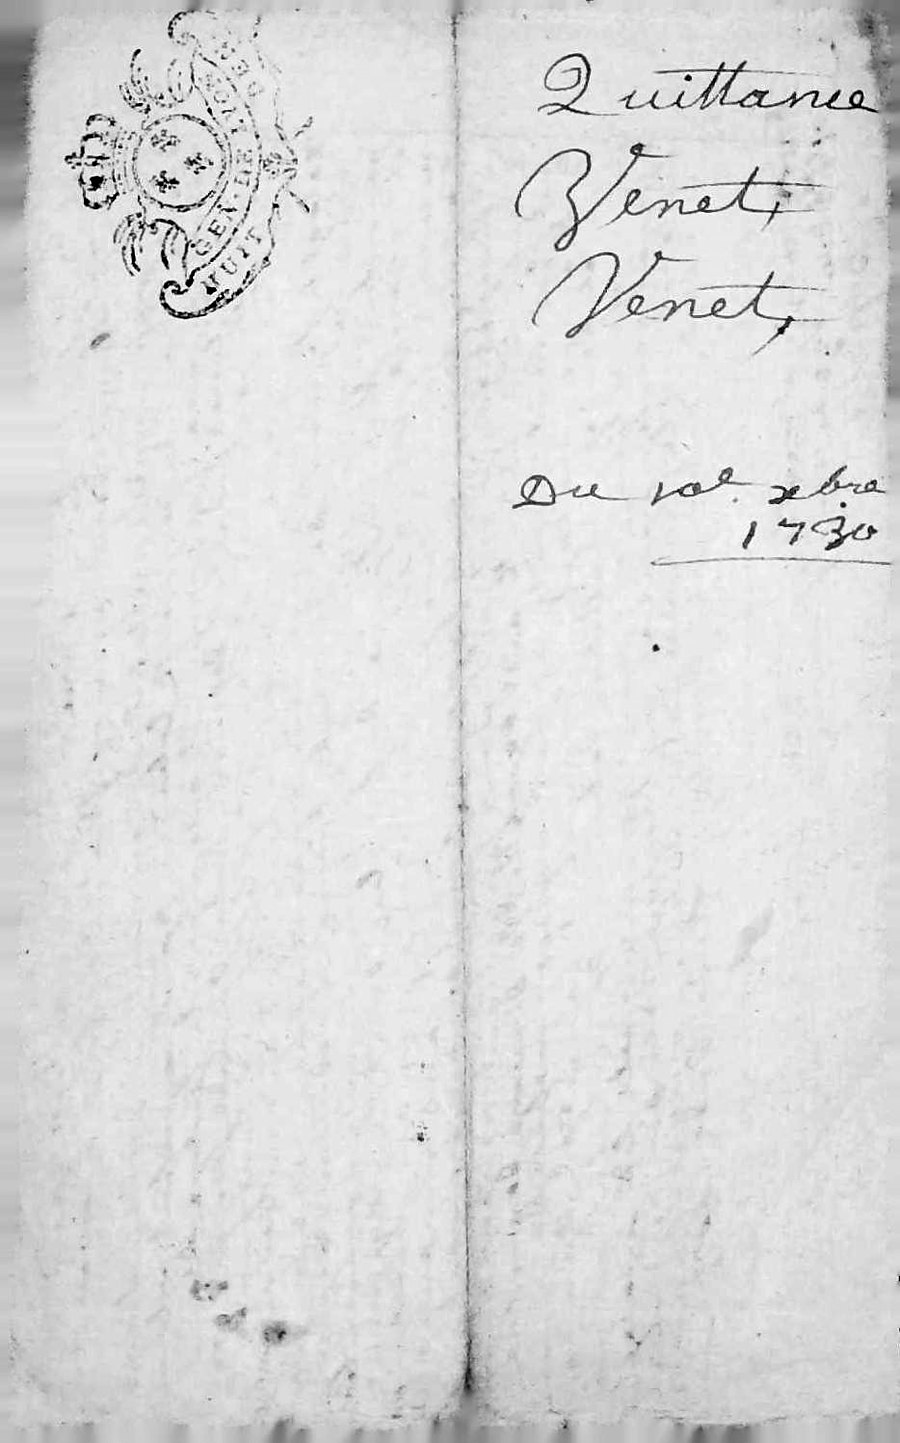 GEN. DE
HUIT
Quittance
Venet,
Venet,
Du 10e. xbre
1730